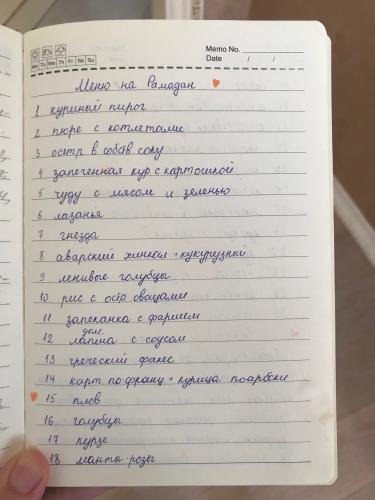 Memo No.
Mo Tu We Th Fr Sa Su
Date / /
Меню на Рамадан
1 куриный пирог
2 пюре с котлетами
3 осетр в собств. соку
4 запеченная кур с картошкой
5 чуду с мясом и зеленью
6 лазанья
7 гнезда
8 аварский хинкал + кукурузный
9 ленивые голубцы
10 рис с остр. овощами
11 запеканка с фаршем
дом.
12 лапша с соусом
13 греческий
14 карт по франц + курица по арабски
15 плов
16 голубцы
17 курзе
18 манты-розы